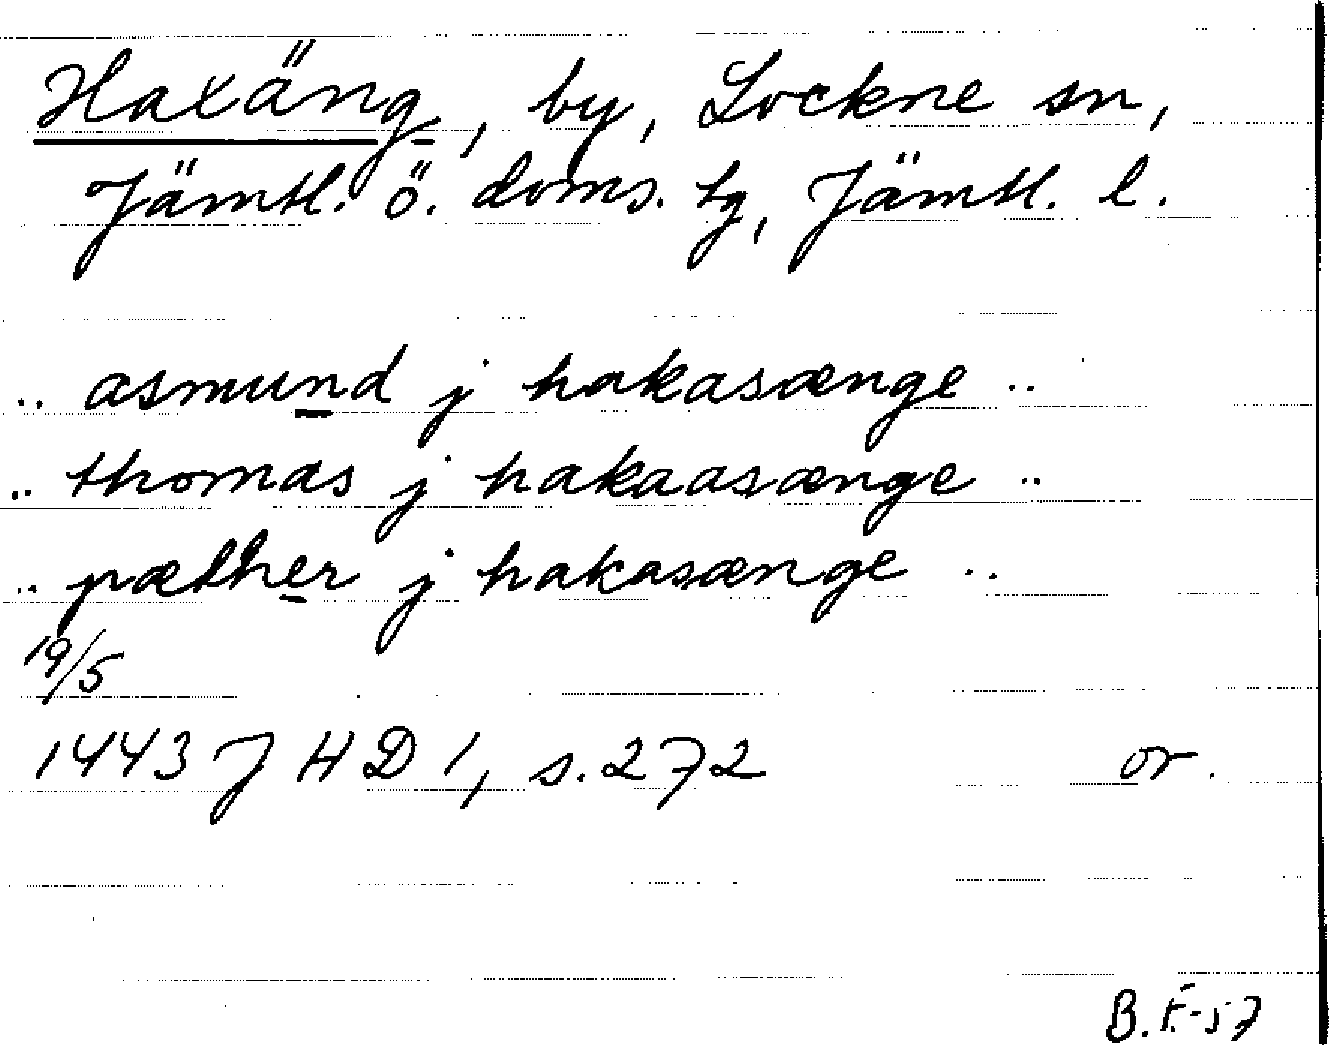 Haxäng, by, Lockne sn,
Jämtl. ö. doms. tg, Jämtl. l.
.. asmund j hakasænge ..
.. thomas j hakaasænge ..
.. pæther j hakasænge ..
19/5
1443 J H D 1, s. 272 or.
B. F-57